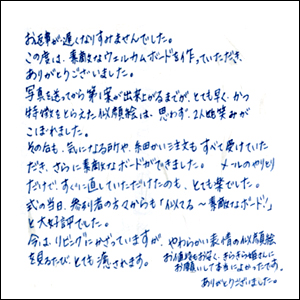 お返事が遅くなりすみませんでした。
この度は、素敵なウェルカムボードを作っていただき、
ありがとうございました。
写真を送ってから第1案が出来上がるまでが、とても早く、かつ
特徴をとらえた似顔絵は、思わず、2人共笑みが
こぼれました。
その后も、気になる所や、細かい注文も すべて受けていた
だき、さらに素敵なボードができました。 メールのやりとり
だけで、すぐに直していただけたのも、とても楽でした。
式の当日、参列者の方々からも「似てる〜 素敵なボード!」
と大好評でした。
今は、リビングにかざっていますが、やわらかい表情の似顔絵
を見るたび、とても癒されます。
お値段もお安く、きらきら絵さんに
お願いして本当によかったです。
ありがとうございました。